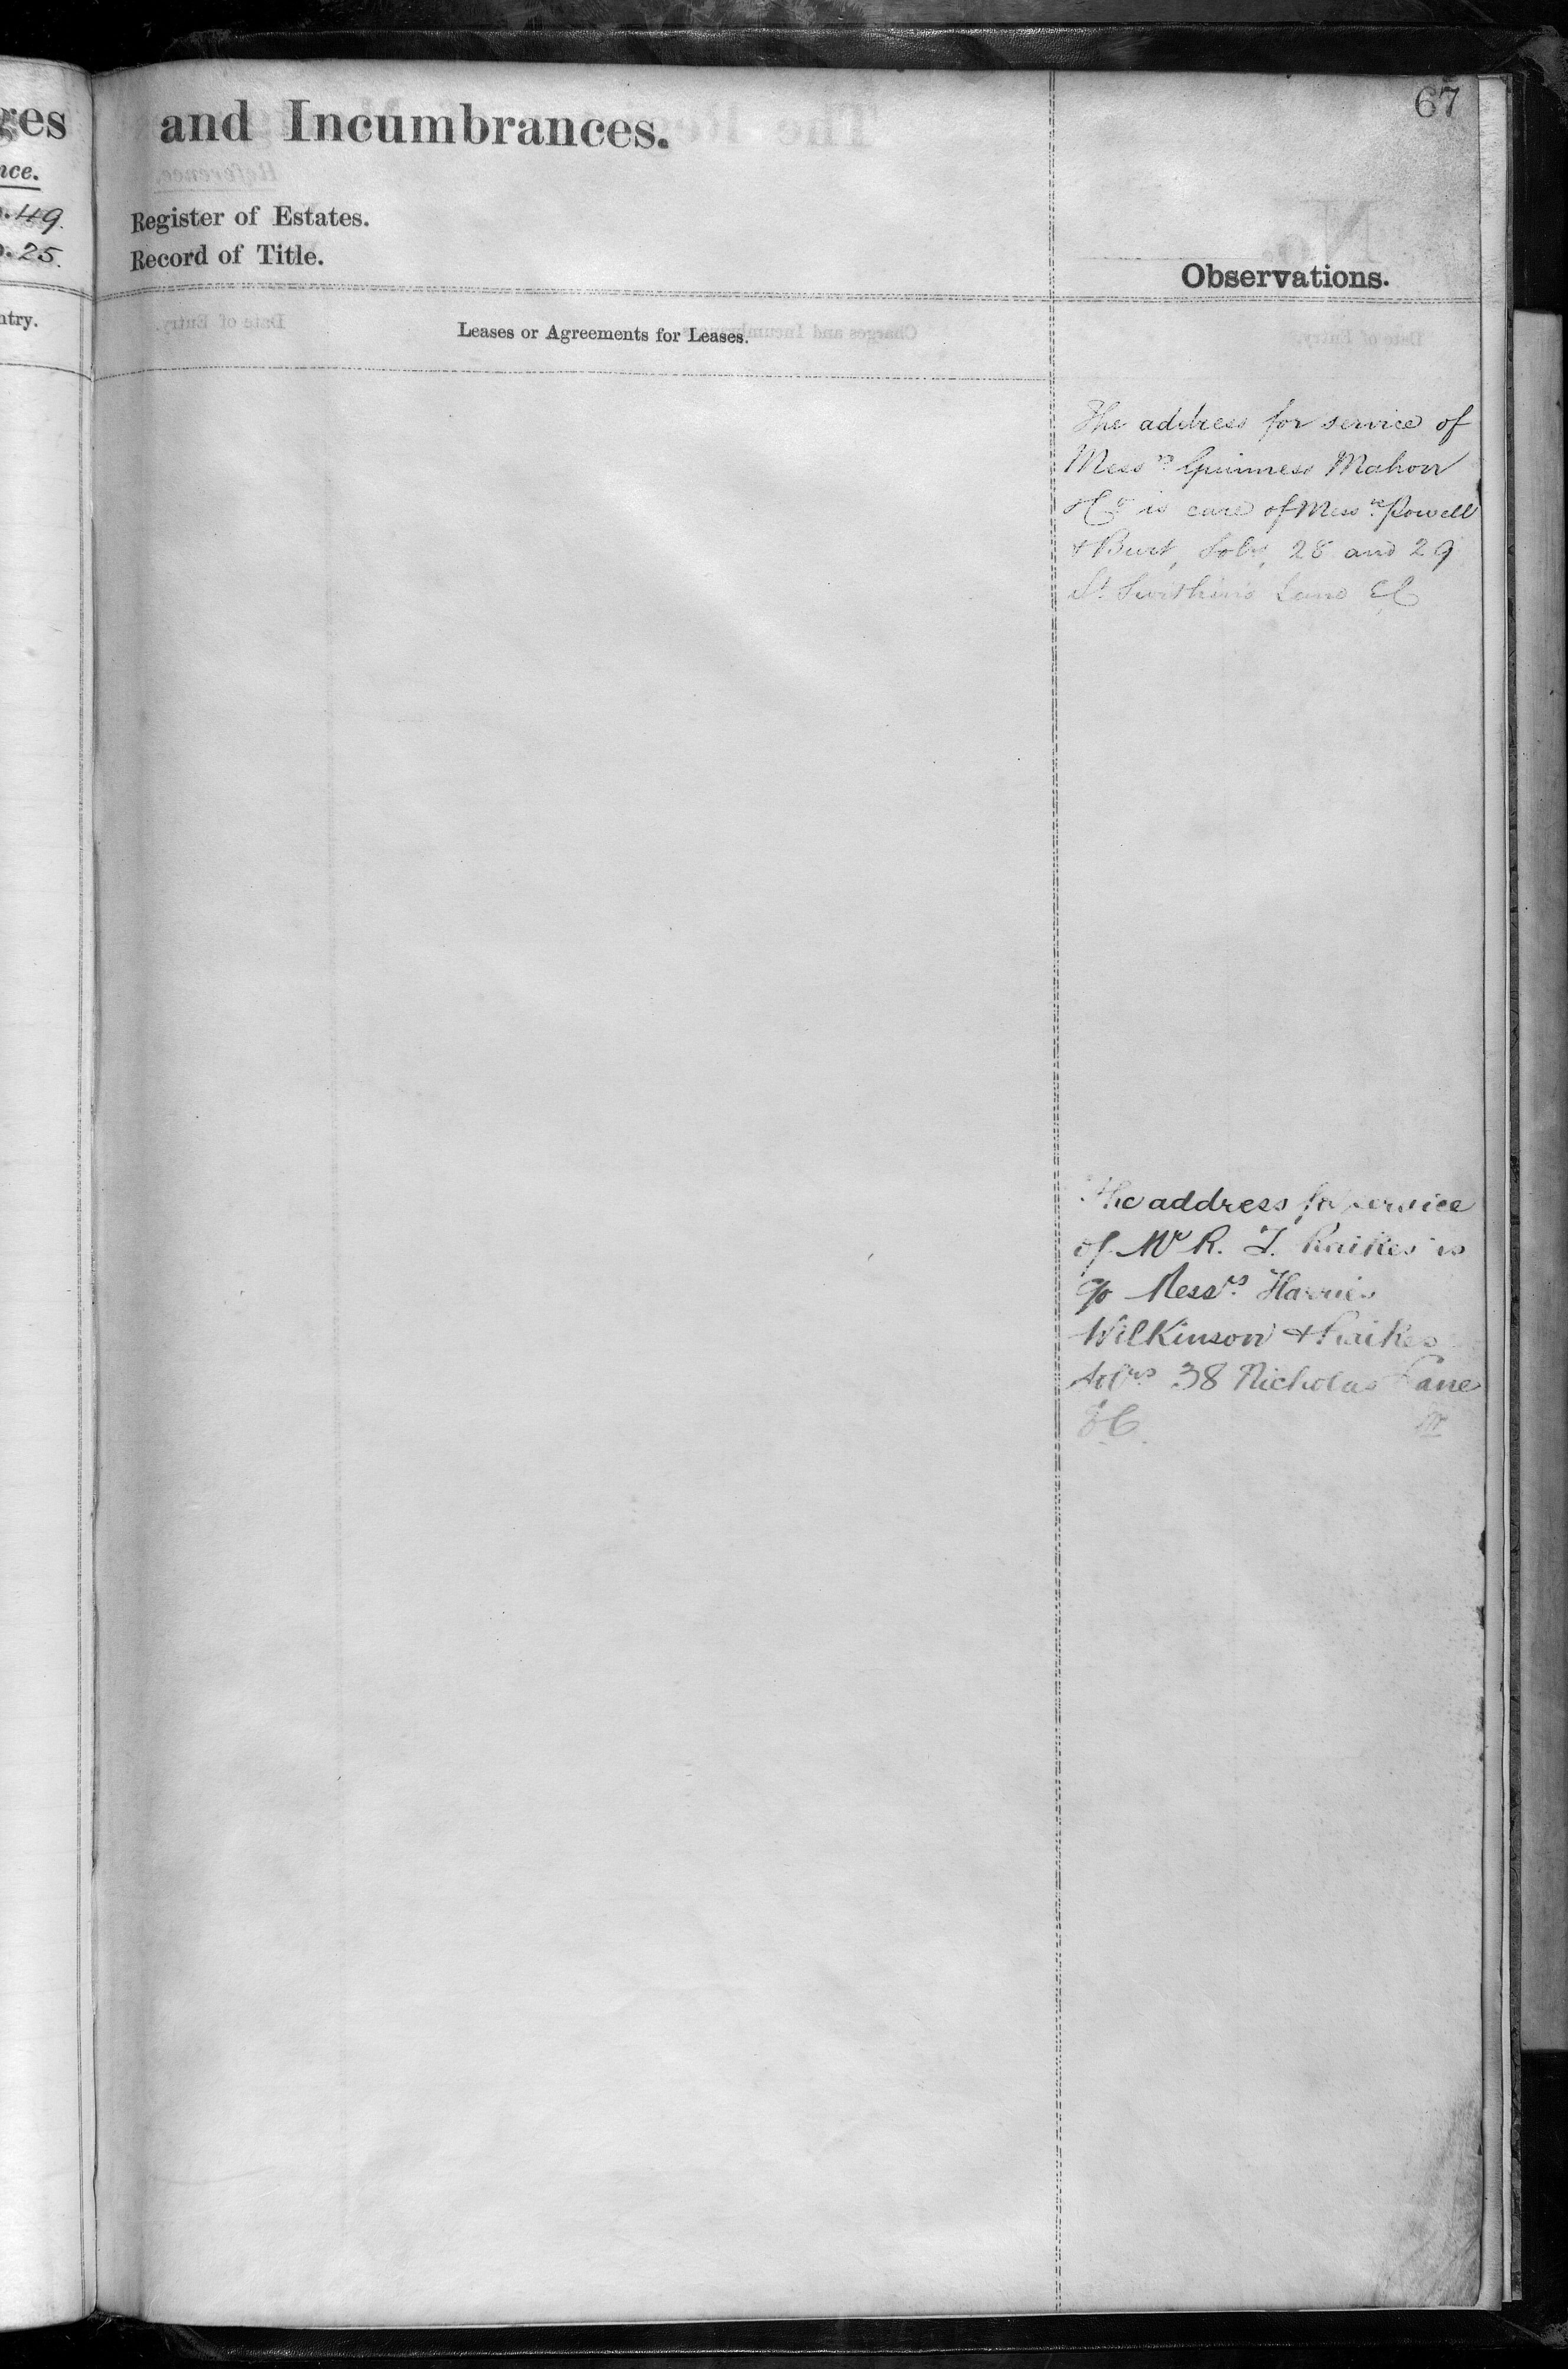 67
ges
and Incumbrances.
nce.
.49.
.25.
Register of Estates.
Record of Title.
Observations.
ntry.
Leases or Agreements for Leases.
The address for service of
Messrs Guinness Mahon
& Co is care of Messrs Powell
& Burt, Solrs, 28 and 29
St Swithin's Lane EC
The address for service
of Mr R. T. Raikes is
c/o Messrs Harries
Wilkinson & Raikes
Solrs 38 Nicholas Lane
EC.